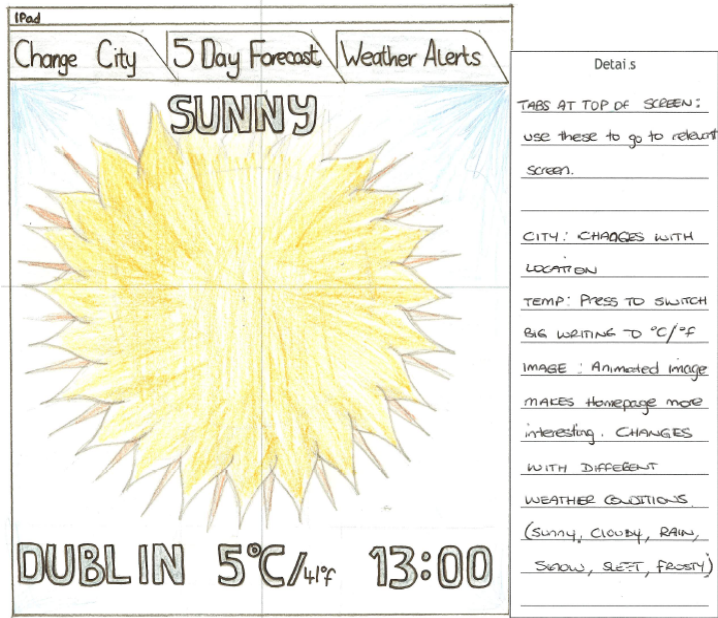 IPad
Change City
5 Day Forecast
Weather Alerts
SUNNY
DUBLIN 5°C/41°F 13:00
Detai.s
TABS AT TOP OF SCREEN:
use these to go to relevant
screen.
CITY: CHANGES WITH
LOCATION
TEMP: Press TO SWITCH
BIG WRITING TO °C/°F
IMAGE : Animated image
MAKES Homepage more
interesting. CHANGES
WITH DIFFERENT
WEATHER CONDITIONS.
(Sunny, CLOUDY, RAIN,
SNOW, SLEET, FROSTY)